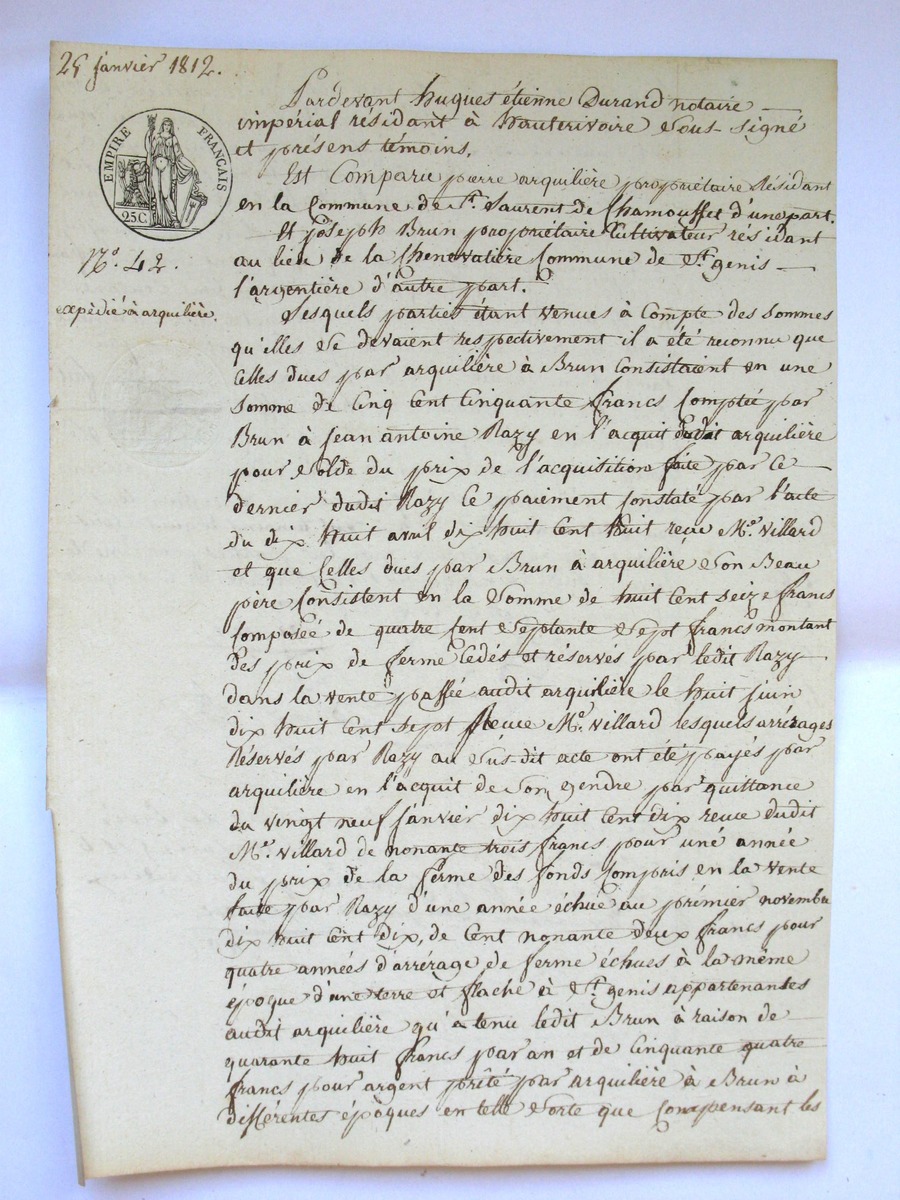 25 janvier 1812.
EMPIRE FRANÇAIS
25C
N.º 42.
expédié à arquilière.
Pardevant hugues étienne Durand notaire
impérial résidant à hauterivoire Sous-signé
et présens témoins.
Est Comparu pierre arquilière propriétaire Résidant
en la Commune de St. Laurent de Chamousset d'une part.
Et joseph Brun propriétaire Cultivateur résidant
au lieu de la Chenevatière Commune de St. genis
l'argentière d'autre part.
Lesquels parties étant venues à Compte des sommes
qu'elles Se devaient respectivement il a été reconnu que
Celles dues par arquilière à Brun Consistaient en une
Somme de Cinq Cent Cinquante francs Comptée par
Brun à jean antoine Razy en l'acquit dudit arquilière
pour Solde du prix de l'acquisition faite par Ce
dernier dudit Razy Ce paiement Constaté par l'acte
du dix huit avril dix huit Cent huit reçu Me. Villard
et que Celles dues par Brun à arquilière Son Beau
père Consistent en la Somme de huit Cent seize francs
Composée de quatre Cent Septante Sept francs montant
des prix de ferme Cédés et réservés par ledit Razy
dans la vente passée audit arquilière le huit juin
dix huit Cent Sept Reçue Me. Villard lesquels arrérages
Réservés par Razy au Sus-dit acte ont été payés par
arquilière en l'acquit de Son gendre par quittance
du vingt neuf janvier dix huit Cent dix reçue dudit
Me. Villard de nonante trois francs pour une année
du prix de la ferme des fonds Compris en la vente
faite par Razy d'une année échue au prémier novembre
dix huit Cent dix, de Cent nonante deux francs pour
quatre années d'arrérage de ferme échues à la même
époque d'une terre et flache à St. genis appartenantes
audit arquilière qu'a tenu ledit Brun à raison de
quarante huit francs par an et de Cinquante quatre
francs pour argent prêté par arquilière à Brun à
différentes époques en telle Sorte que Compensant les